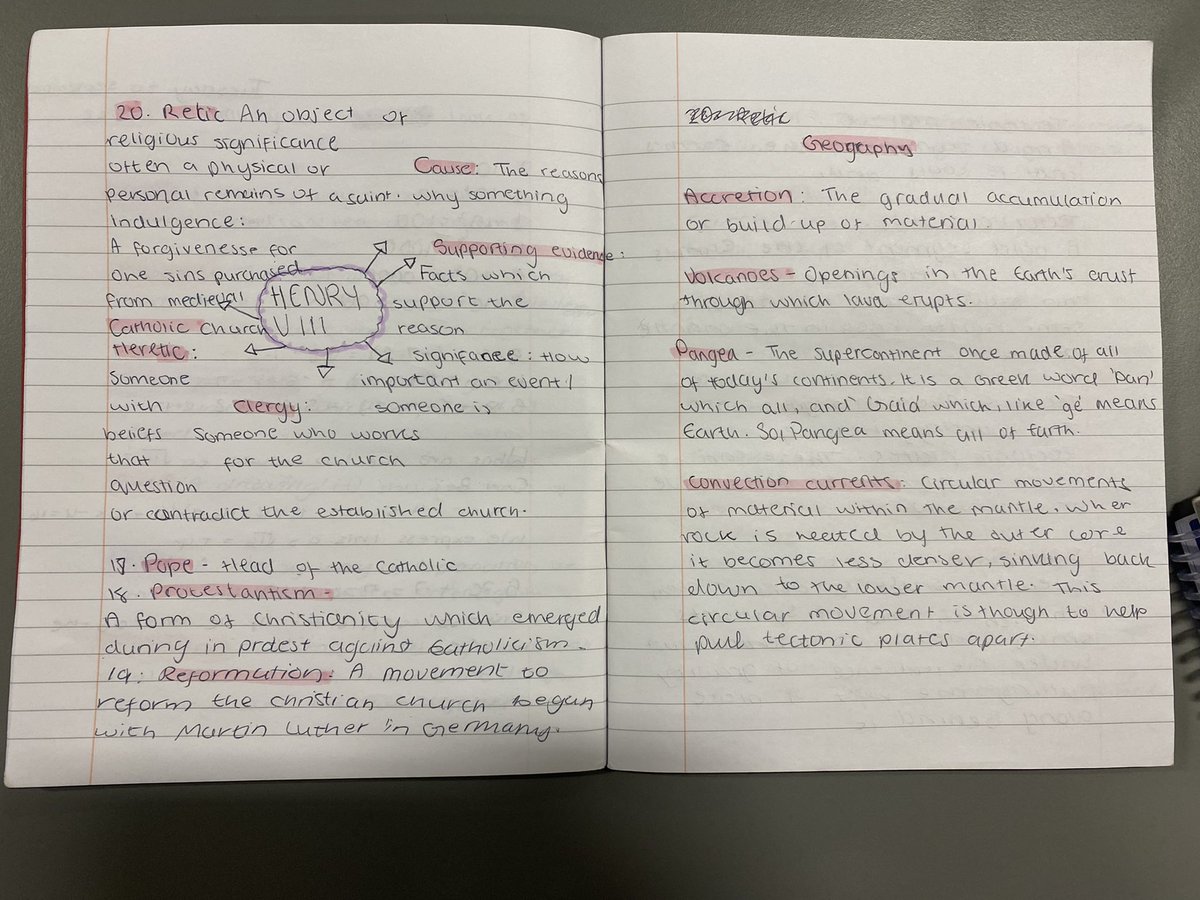 20. Relic An object of
religious significance
often a physical or
personal remains of a saint.
Indulgence:
A forgivenesse for
one sins purchased
from medieval
Catholic Church
Heretic:
Someone
with
beliefs
that
question
or contradict the established church.
Cause: The reasons
why something
Supporting evidence:
Facts which
support the
reason
HENRY
VIII
signifance: How
important an event/
someone is
Clergy:
Someone who works
for the church
17. Pope - Head of the Catholic
18. Protestantism -
A form of Christianity which emerged
during in protest against Catholicism.
19: Reformation: A movement to
reform the christian church began
with Martin Luther in Germany.
Geography
Accretion: The gradual accumulation
or build-up of material.
Volcanoes - Openings in the Earth's crust
through which lava erupts.
Pangea - The supercontinent once made of all
of today's continents. It is a Greek word 'Pan'
which all, and 'Gaia' which, like 'ge' means
Earth. So, Pangea means all of Earth.
Convection currents: Circular movements
of material within the mantle. When
rock is heated by the outer core
it becomes less denser, sinking back
down to the lower mantle. This
circular movement is though to help
pull tectonic plates apart.